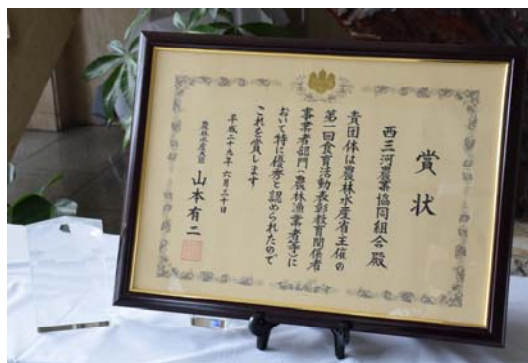 賞状
西三河農業協同組合殿
貴団体は農林水産省主催の
第一回食育活動表彰教育関係者
事業者部門(農林漁業者等)に
おいて特に優秀と認められたので
これを賞します
平成二十九年六月三十日
農林水産大臣 山本有二